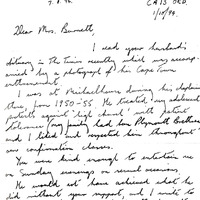 CA13 0RD.
1/5/94.
Dear Mrs. Bennett,
I read your husband's
obituary in The Times recently which was accomp-
anied by a photograph of his Cape Town
enthronement.
I was at Michaelhouse during his chaplain
there, from 1950-55. He treated my adolescent
protests against 'high church' with patient
tolerance (my family had been Plymouth Brethren
and I liked and respected him throughout
our confirmation classes.
You were kind enough to entertain me
on Sunday evenings on several occasions.
He would not have achieved what he
did without your support, and I write to